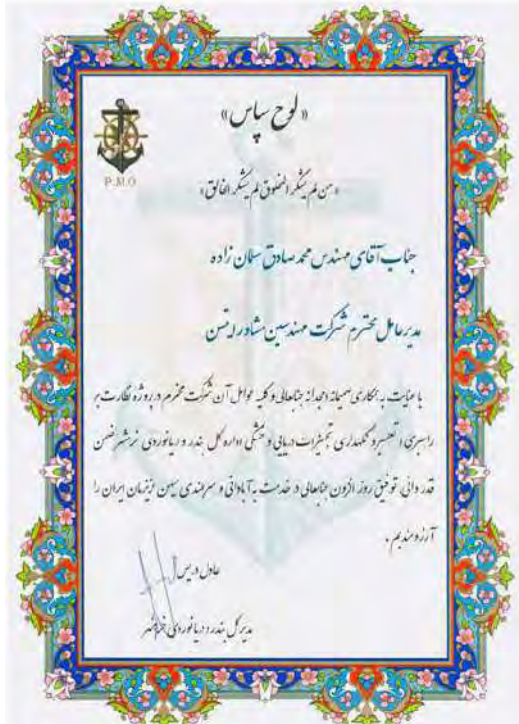 «لوح سپاس»
P.M.O
«من لم یشکر المخلوق لم یشکر الخالق»
جناب آقای مهندس محمد صادق سلمان زاده
مدیر عامل محترم شرکت مهندسین مشاور
با عنایت به همکاری صمیمانه و مجدانه جنابعالی و کلیه عوامل آن شرکت محترم در پروژه نظارت بر
راهبری، تعمیر و نگهداری تجهیزات دریایی و خشکی اداره کل بندر و دریانوردی خرمشهر ضمن
قدردانی، توفیق روز افزون جنابعالی در خدمت به آبادانی و سربلندی میهن عزیزمان ایران را
آرزومندیم.
عادل دریس
مدیر کل بندر و دریانوردی خرمشهر